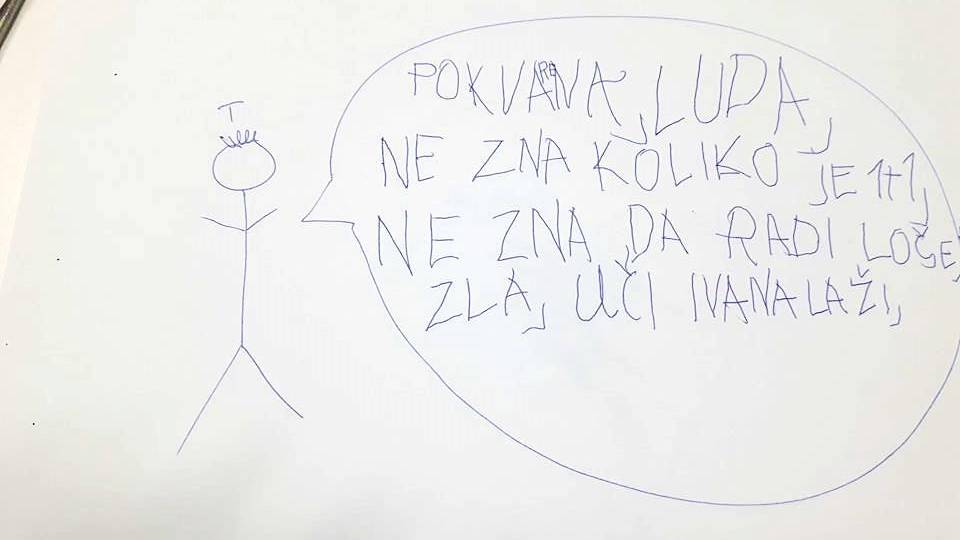 T
POKVARENA, LUDA,
NE ZNA KOLIKO JE 1+1,
NE ZNA DA RADI LOŠE,
ZLA, UČI IVANA LAŽI,